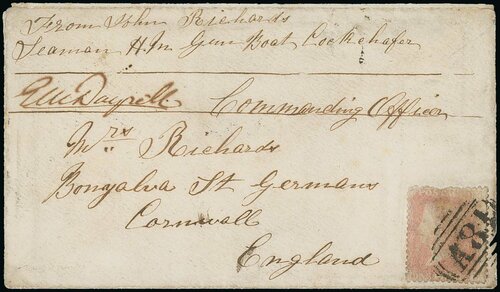 From John Richards
Seaman H.M Gun Boat Cockchafer
Commanding Officer
Mrs Richards
Bongalva St Germans
Cornwall
England
A81